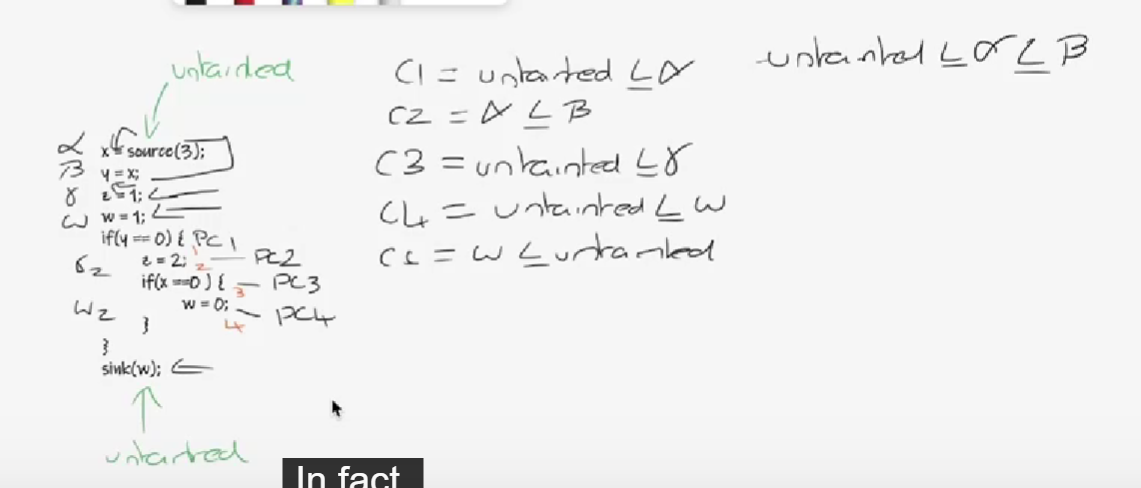 untainted
α x = source(3);
β y = x;
γ z = 1;
ω w = 1;
if(y == 0) { PC1
γ2 z = 2; PC2
if(x ==0) { PC3
ω2 w = 0; PC4
}
}
sink(w);
untainted
1
2
3
4
C1 = untainted ≤ α
C2 = α ≤ β
C3 = untainted ≤ γ
C4 = untainted ≤ ω
C5 = ω ≤ untainted
untainted ≤ α ≤ β
In fact